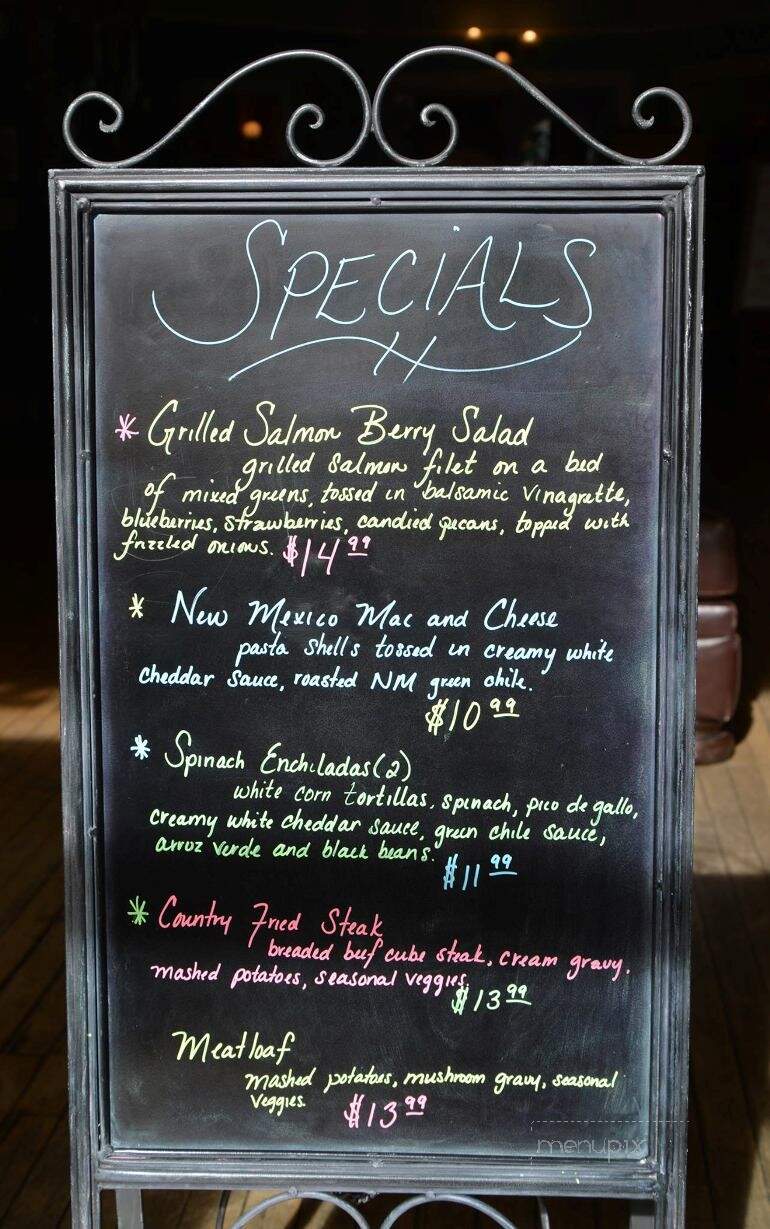 SPECiALS
* Grilled Salmon Berry Salad
grilled salmon filet on a bed
of mixed greens, tossed in balsamic vinagrette,
blueberries, strawberries, candied pecans, topped with
frizzled onions. $14 99
* New Mexico Mac and Cheese
pasta shells tossed in creamy white
cheddar sauce, roasted NM green chile.
$10 99
* Spinach Enchiladas (2)
white corn tortillas, spinach, pico de gallo,
creamy white cheddar sauce, green chile sauce,
arroz verde and black beans.
$11 99
* Country Fried Steak
breaded beef cube steak, cream gravy,
mashed potatoes, seasonal veggies.
$13 99
Meatloaf
mashed potatoes, mushroom gravy, seasonal
veggies. $13 99
menupix